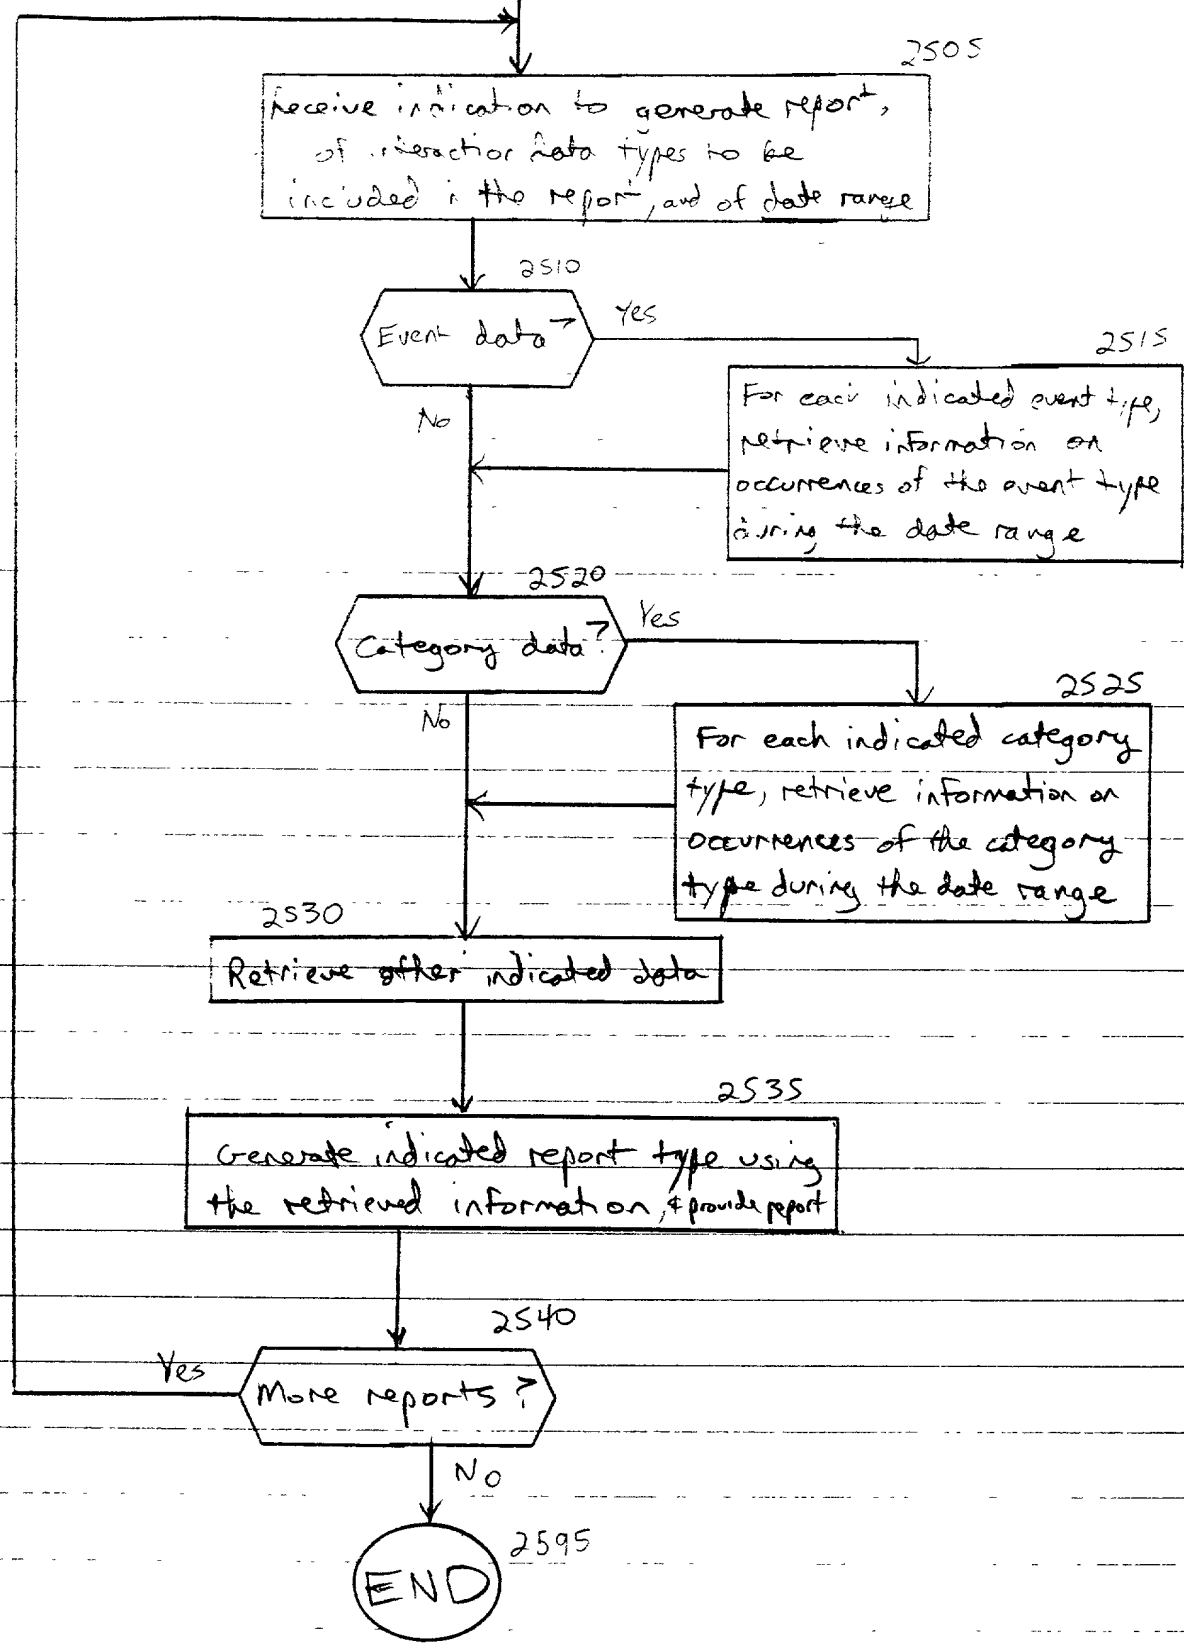 2505
Receive indication to generate report,
of interaction data types to be
included in the report, and of date range
2510
Event data?
Yes
No
2515
For each indicated event type,
retrieve information on
occurrences of the event type
during the date range
2520
Category data?
Yes
No
2525
For each indicated category
type, retrieve information on
occurrences of the category
type during the date range
2530
Retrieve other indicated data
2535
Generate indicated report type using
the retrieved information, & provide report
2540
More reports?
Yes
No
2595
END